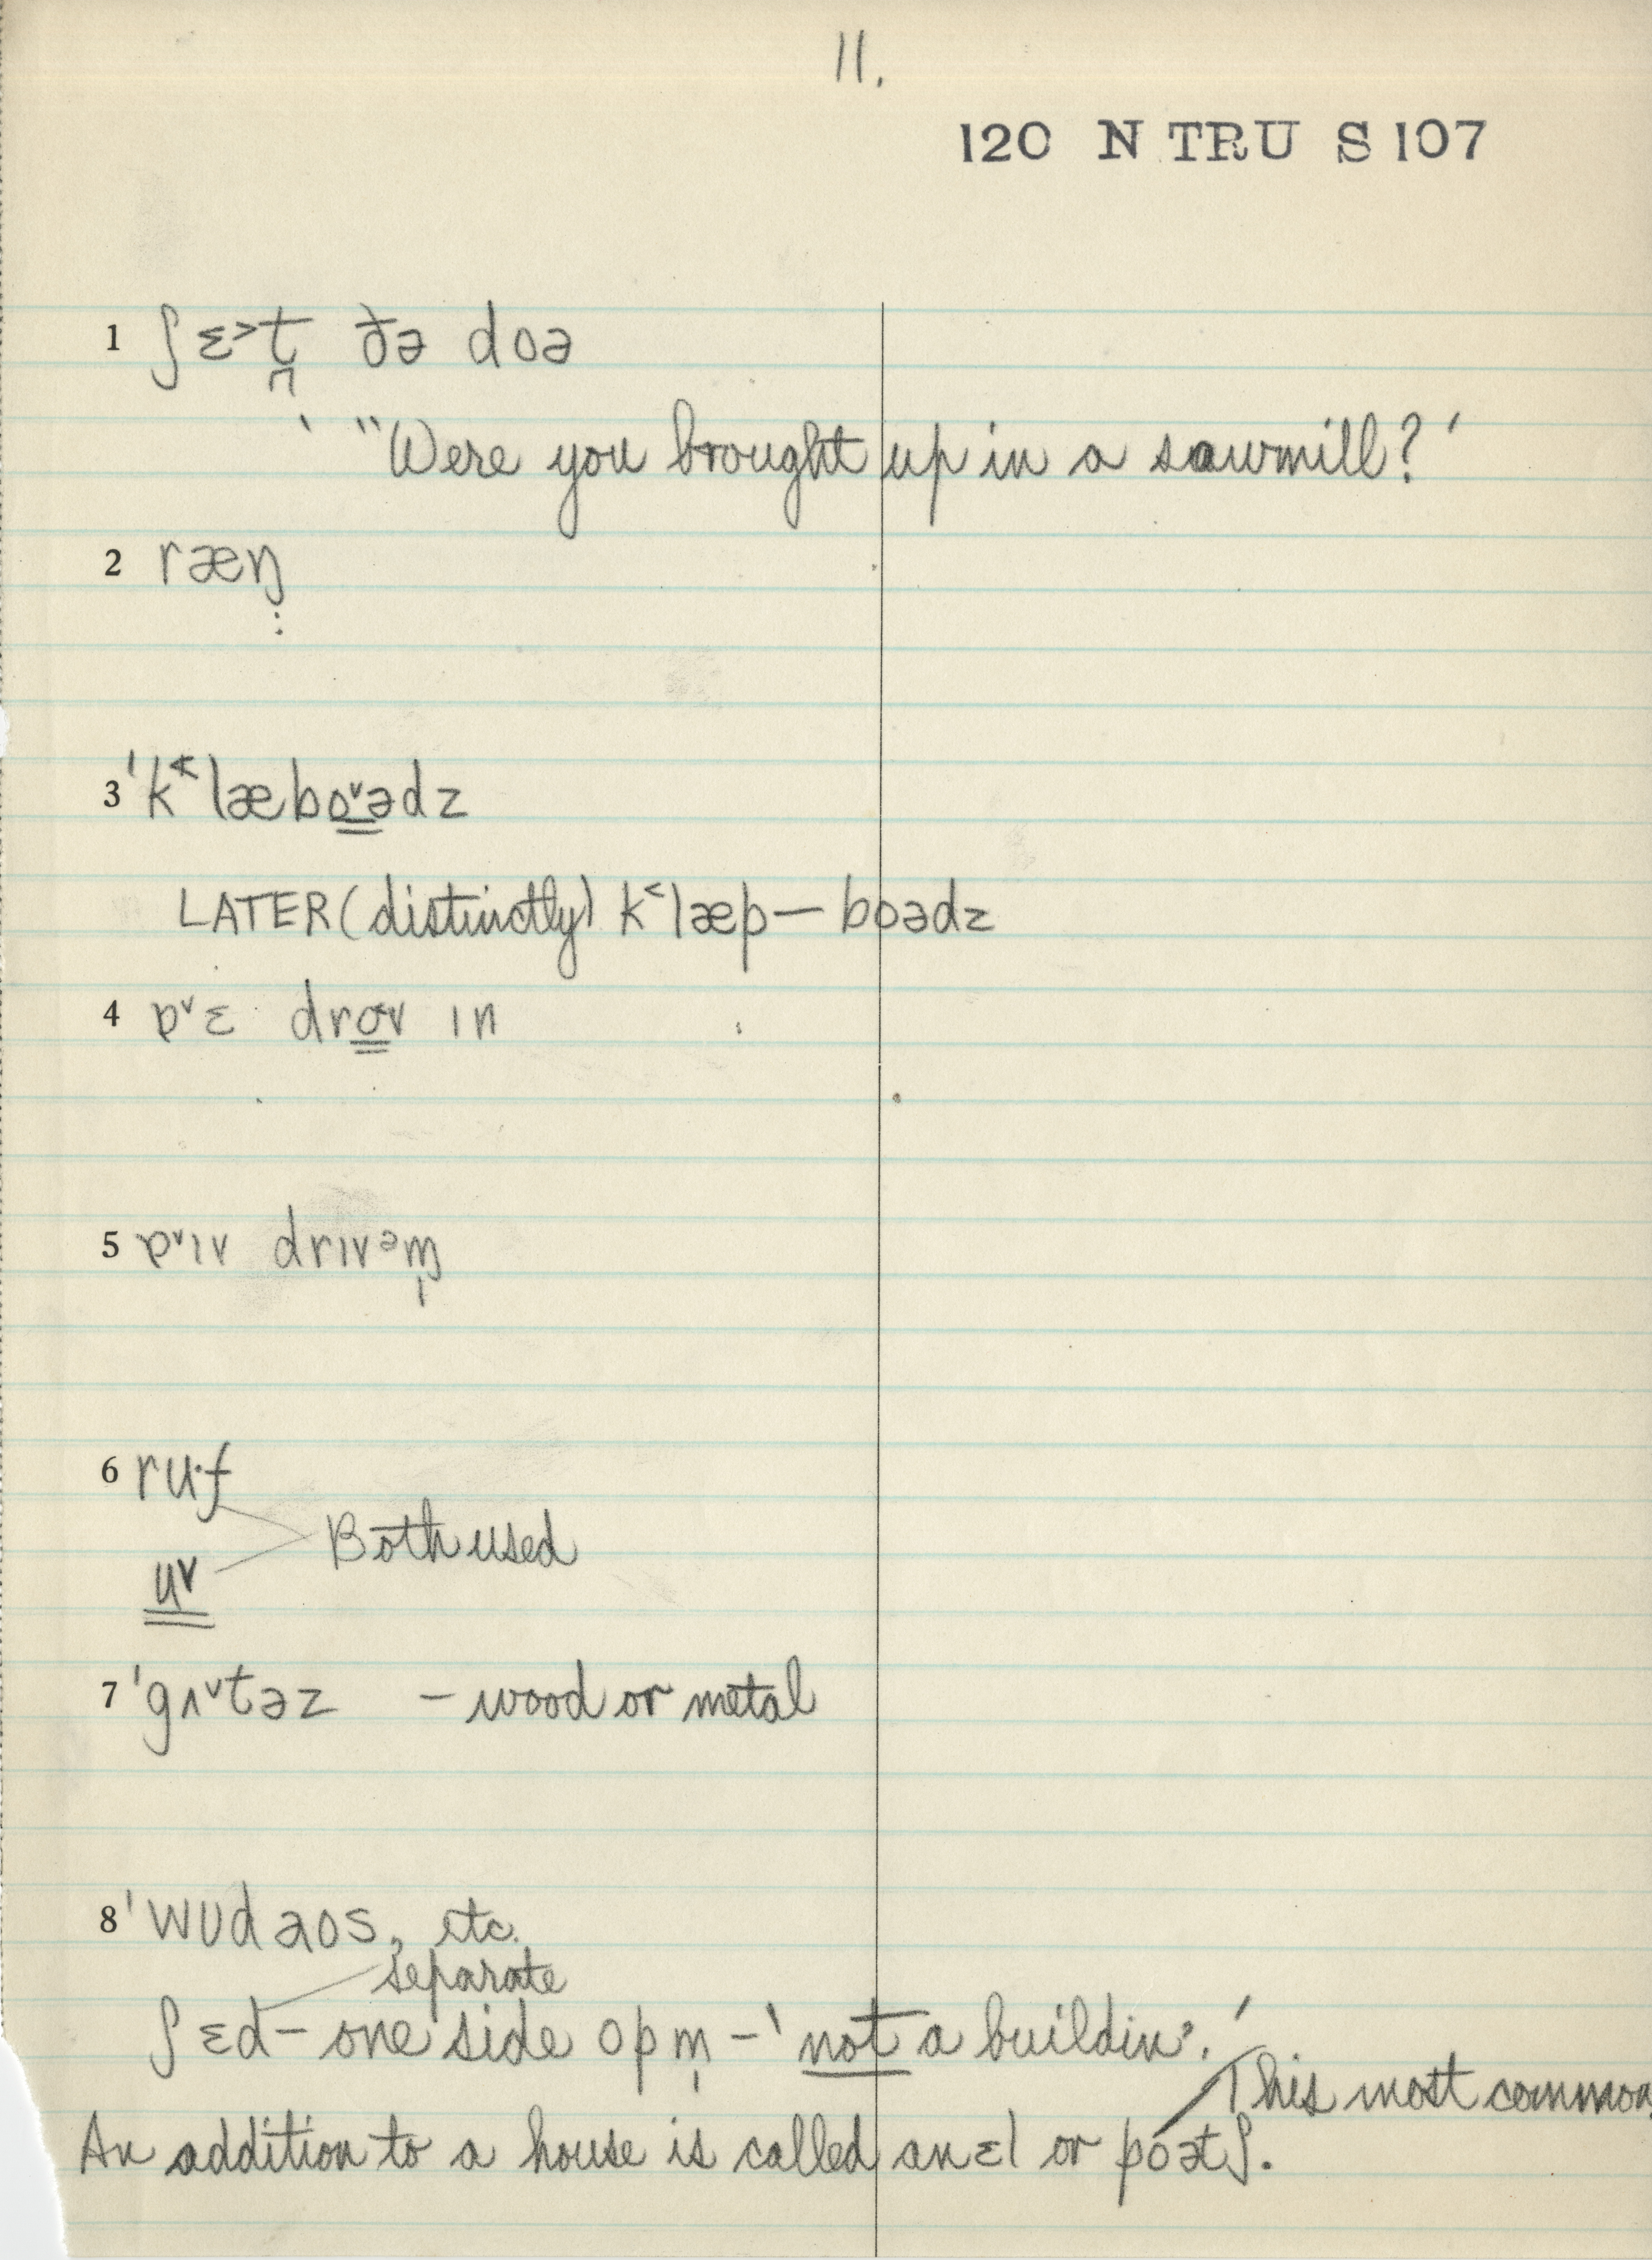 11.
120 N TRU S 107
1 ʃɛ˃t̪ ðə doə
' "Were you brought up in a sawmill?'
2 ræŋ
3 'k˂læbo̳˅ədz
LATER (distinctly) k˂læp — boədz
4 ɒ˅ɛ dro̳v ɪn
5 ɒ˅ɪv drɪvᵊm̩
6 ru·f
u̳˅
Both used
7 'gʌ˅təz – wood or metal
8 'wʊdaʊs, etc.
separate
ʃɛd – one side opm̩ – 'not a buildin'.'
This most common
An addition to a house is called an ɛl or poətʃ.